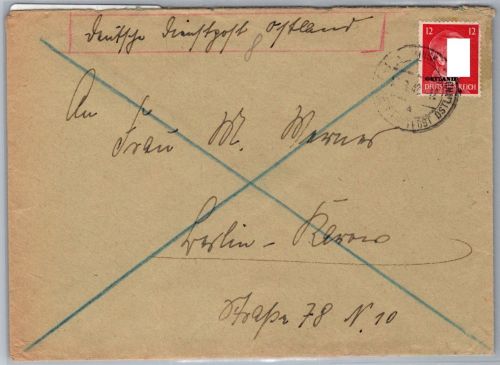 Deutsche Dienstpost Ostland
12 12
OSTLAND
DEUTSCHES REICH
An
Frau M. Werner
Berlin - Karow
Straße 78 N. 10